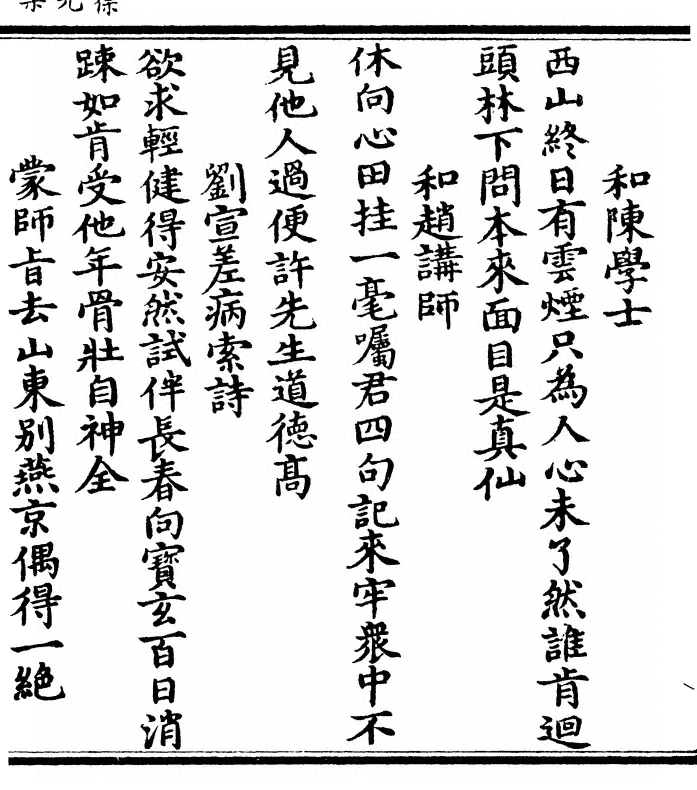 和陳學士
西山終日有雲煙只為人心未了然誰肯迴
頭林下問本來面目是真仙
和趙講師
休向心田挂一毫囑君四句記來牢衆中不
見他人過便許先生道德高
劉宣差病索詩
欲求輕健得安然試伴長春向寶玄百日消
踈如肯受他年骨壯自神全
蒙師旨去山東別燕京偶得一絕